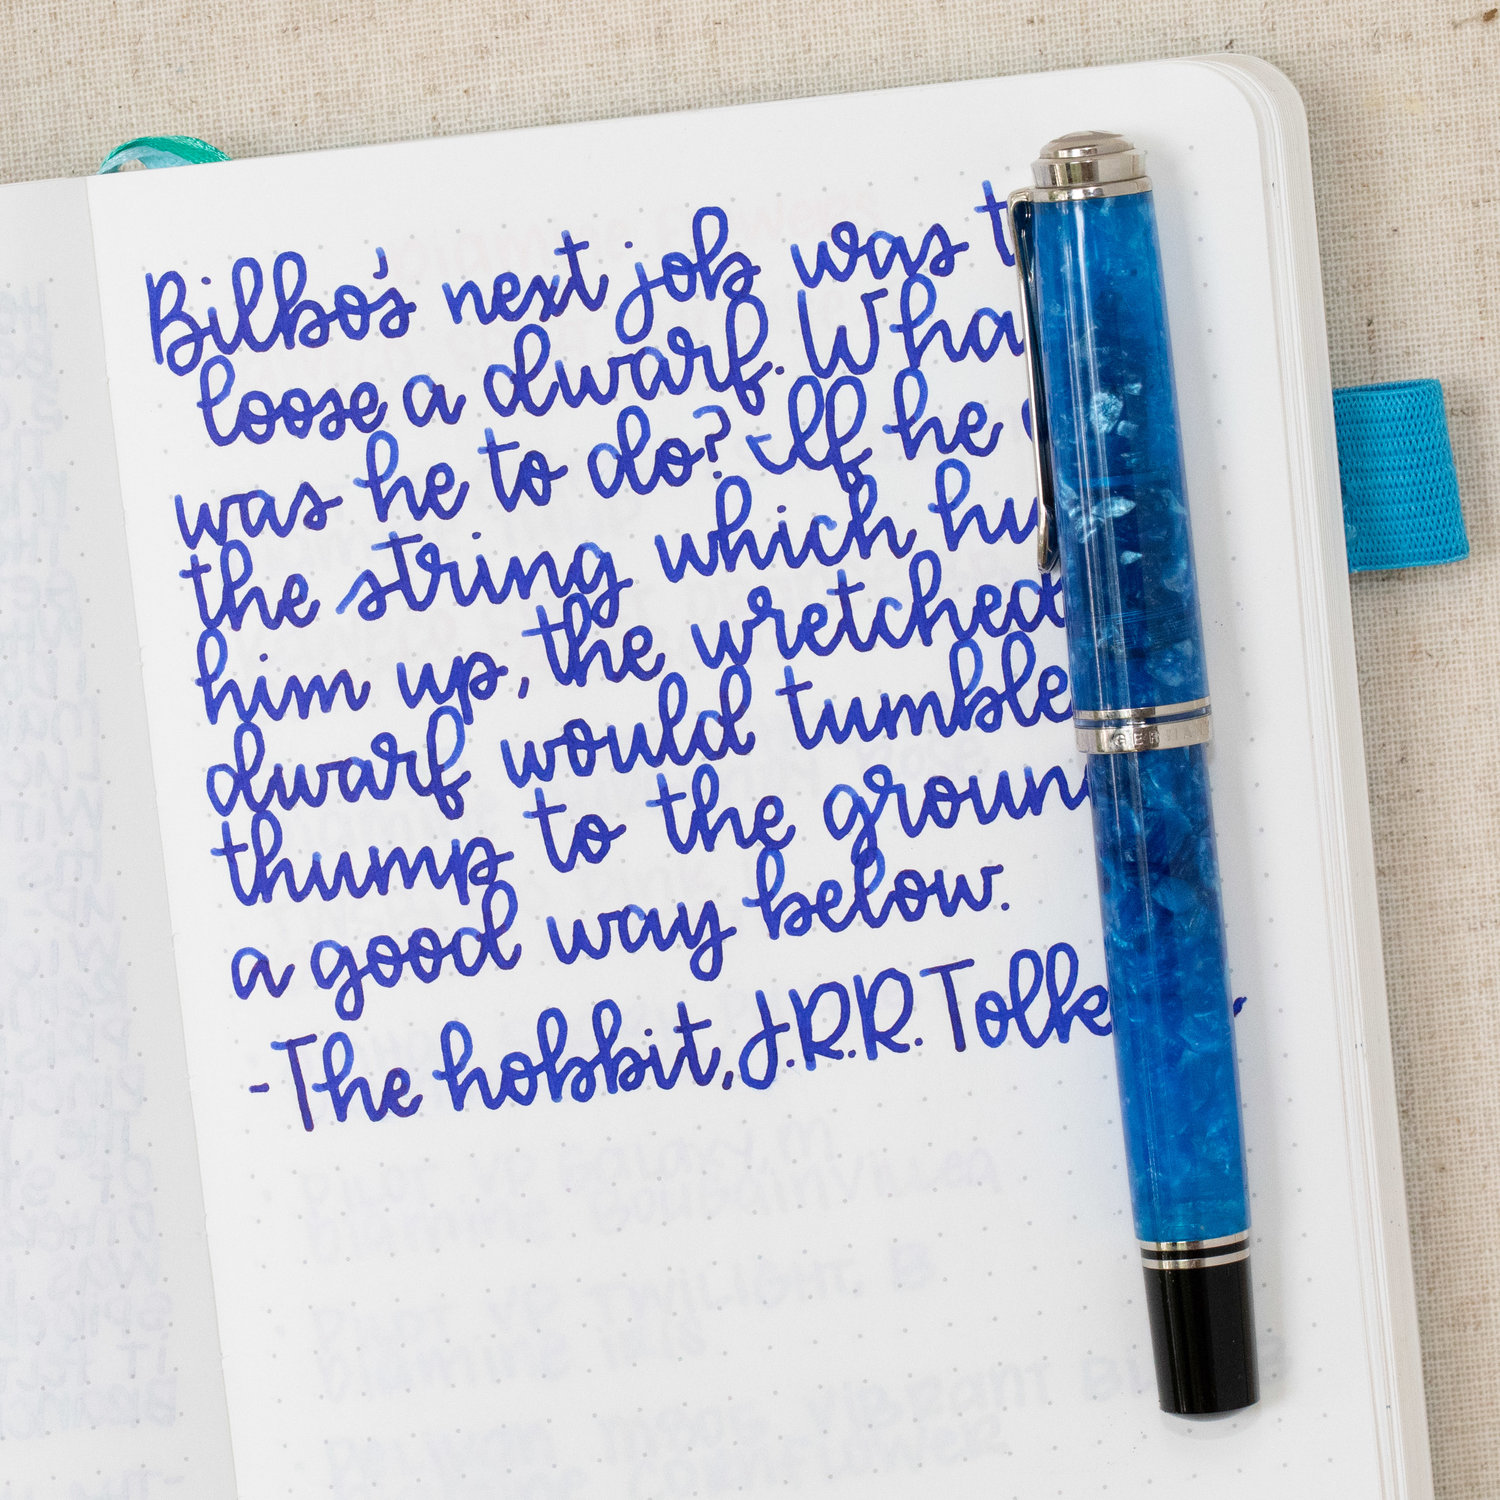 Bilbo's next job was t
loose a dwarf. Wha
was he to do? If he
the string which hu
him up, the wretched
dwarf would tumble
thump to the ground
a good way below.
-The hobbit, J.R.R. Tolke
GERMANY